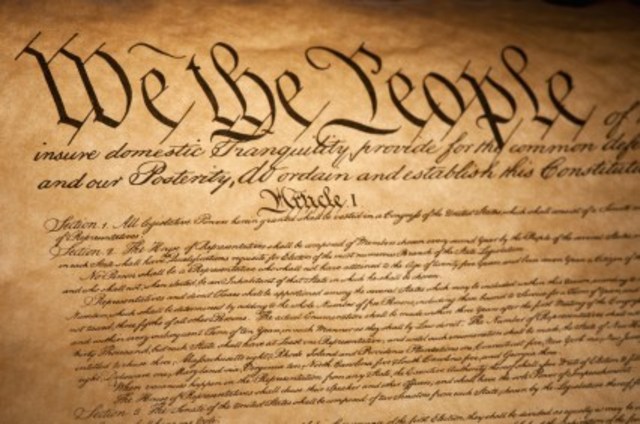 We the People of
insure domestic Tranquility, provide for the common
and our Posterity, do ordain and establish this
Article I
Section 1. All legislative Powers herein granted shall be vested in a Congress of the United States, which shall consist of a Senate
of Representatives.
Section 2. The House of Representatives shall be composed of Members chosen every second Year by the People of the several States
in each State shall have the Qualifications requisite for Electors of the most numerous Branch of the State Legislature.
No Person shall be a Representative who shall not have attained to the Age of twenty five Years, and been seven Years a Citizen of
and who shall not, when elected, be an Inhabitant of that State in which he shall be chosen.
Representatives and direct Taxes shall be apportioned among the several States which may be included within this Union,
Numbers, which shall be determined by adding to the whole Number of free Persons, including those bound to Service for a Term of Years
not taxed, three fifths of all other Persons. The actual Enumeration shall be made within three Years after the first Meeting of the
and within every subsequent Term of ten Years, in such Manner as they shall by Law direct. The Number of Representatives shall
thirty Thousand, but each State shall have at Least one Representative; and until such enumeration shall be made, the State of
entitled to chuse three, Massachusetts eight, Rhode Island and Providence Plantations one, Connecticut five, New York six, New Jersey
eight, Delaware one, Maryland six, Virginia ten, North Carolina five, South Carolina five, and Georgia three.
When vacancies happen in the Representation from any State, the Executive Authority thereof shall issue Writs of Election to
The House of Representatives shall chuse their Speaker and other Officers; and shall have the sole Power of Impeachment.
Section 3. The Senate of the United States shall be composed of two Senators from each State, chosen by the Legislature